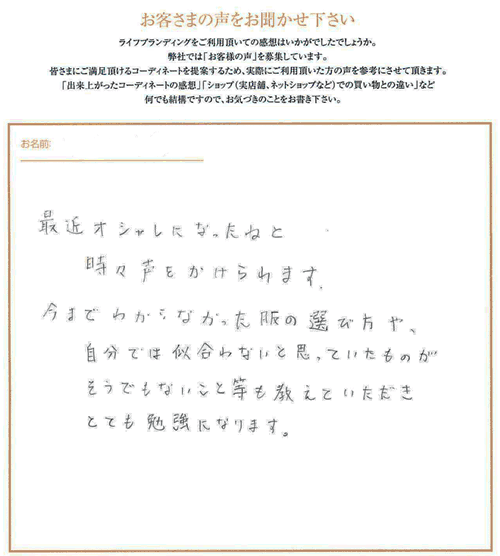 お客さまの声をお聞かせ下さい
ライフブランディングをご利用頂いての感想はいかがでしたでしょうか。
弊社では「お客様の声」を募集しています。
皆さまにご満足頂けるコーディネートを提案するため、実際にご利用頂いた方の声を参考にさせて頂きます。
「出来上がったコーディネートの感想」「ショップ（実店舗、ネットショップなど）での買い物との違い」など
何でも結構ですので、お気づきのことをお書き下さい。
お名前:
最近オシャレになったねと
時々声をかけられます。
今までわからなかった服の選び方や、
自分では似合わないと思っていたものが
そうでもないこと等も教えていただき
とても勉強になります。